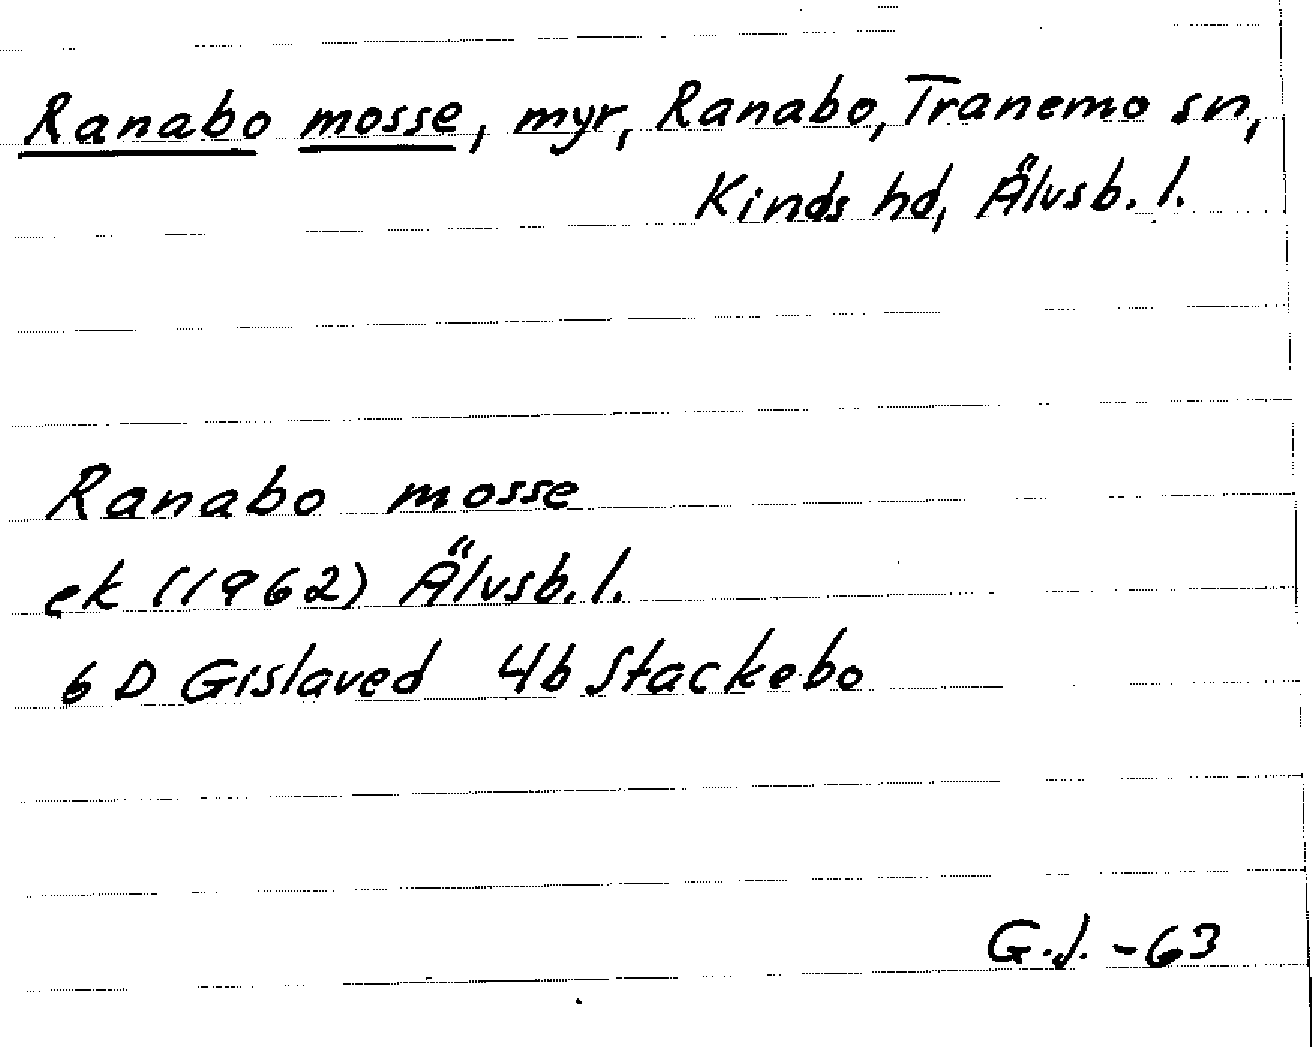 Ranabo mosse, myr, Ranabo, Tranemo sn,
Kinds hd, Älvsb. l.
Ranabo mosse
ek (1962) Älvsb. l.
6 D Gislaved 4b Stackebo
G.J. -63